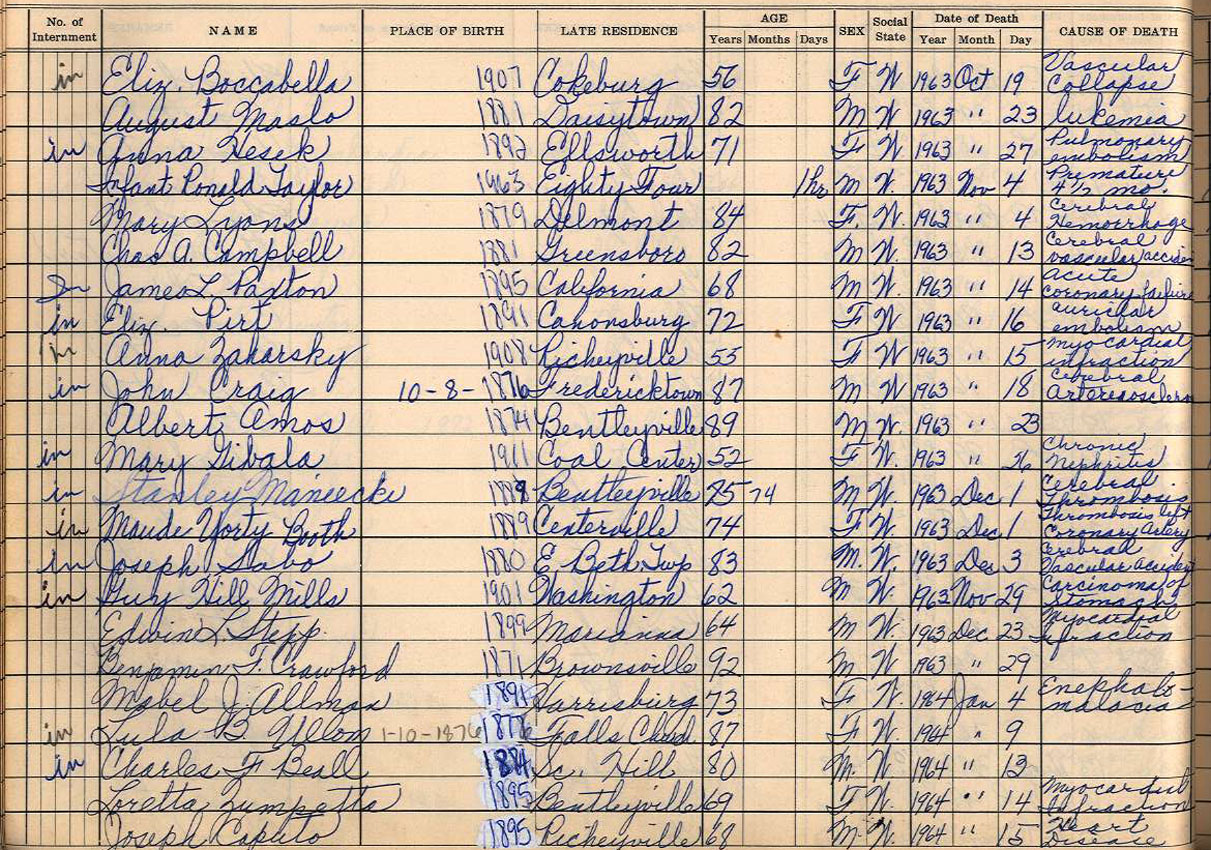 No. of Internment NAME PLACE OF BIRTH LATE RESIDENCE AGE Years Months Days SEX Social State Date of Death Year Month Day CAUSE OF DEATH
in Eliz. Boccabella 1907 Cokeburg 56 F W. 1963 Oct 19 Vascular Collapse
August Maslo 1881 Daisytown 82 M W. 1963 " 23 lukemia
in Anna Hesek 1892 Ellsworth 71 F W 1963 " 27 Pulmonary embolism
Infant Ronald Taylor 1963 Eighty Four 1hr M W. 1963 Nov 4 Premature 4½ mo.
Mary Lyons 1879 Delmont 84 F. W. 1963 " 4 Cerebral Hemorrhage
Chas A. Campbell 1881 Greensboro 82 M W. 1963 " 13 Cerebral vascular acciden
In James L. Paxton 1895 California 68 M W. 1963 " 14 Acute coronary failure
in Eliz. Pirt 1891 Canonsburg 72 F W. 1963 " 16 auricular embolism
in Anna Zaharsky 1908 Richeyville 55 F W 1963 " 15 myocardial infraction
in John Craig 10-8-1876 Fredericktown 87 M W 1963 " 18 Cerebral Arteriosclero
Albert Amos 1874 Bentleyville 89 M W. 1963 " 23
in Mary Gibala 1911 Coal Center 52 F W. 1963 " 26 Chronic Nephritis
in Stanley 1889 Bentleyville 74 M W. 1963 Dec 1 Cerebral Thrombosis
in Maude Yorty Booth 1889 Centerville 74 F W. 1963 Dec 1 Thrombosis left Coronary Artery
in Joseph Sabo 1880 E. Beth Twp 83 M. W. 1963 Dec 3 Cerebral Vascular Accident
in Guy Hill Mills 1901 Washington 62 M W. 1963 Nov 29 Carcinoma of Stomach
Edwin L. Stepp. 1899 Marianna 64 M W. 1963 Dec 23 Myocardial ifraction
Benjamin F. Crawford 1871 Brownsville 92 M W. 1963 " 29
Mabel J. Allman 1891 Harrisburg 73 F W. 1964 Jan 4 Enephalo-malacia
in Lula B. Ullom 1-10-1876 1876 Falls Chud. 87 F W. 1964 " 9
in Charles F Beall 1884 Sc. Hill 80 M. W 1964 " 13
Loretta Zumpetta 1895 Bentleyville 69 F W. 1964 " 14 Myocardial Infraction
Joseph Caputo 1895 Richeyville 68 M. W. 1964 " 15 Heart Disease